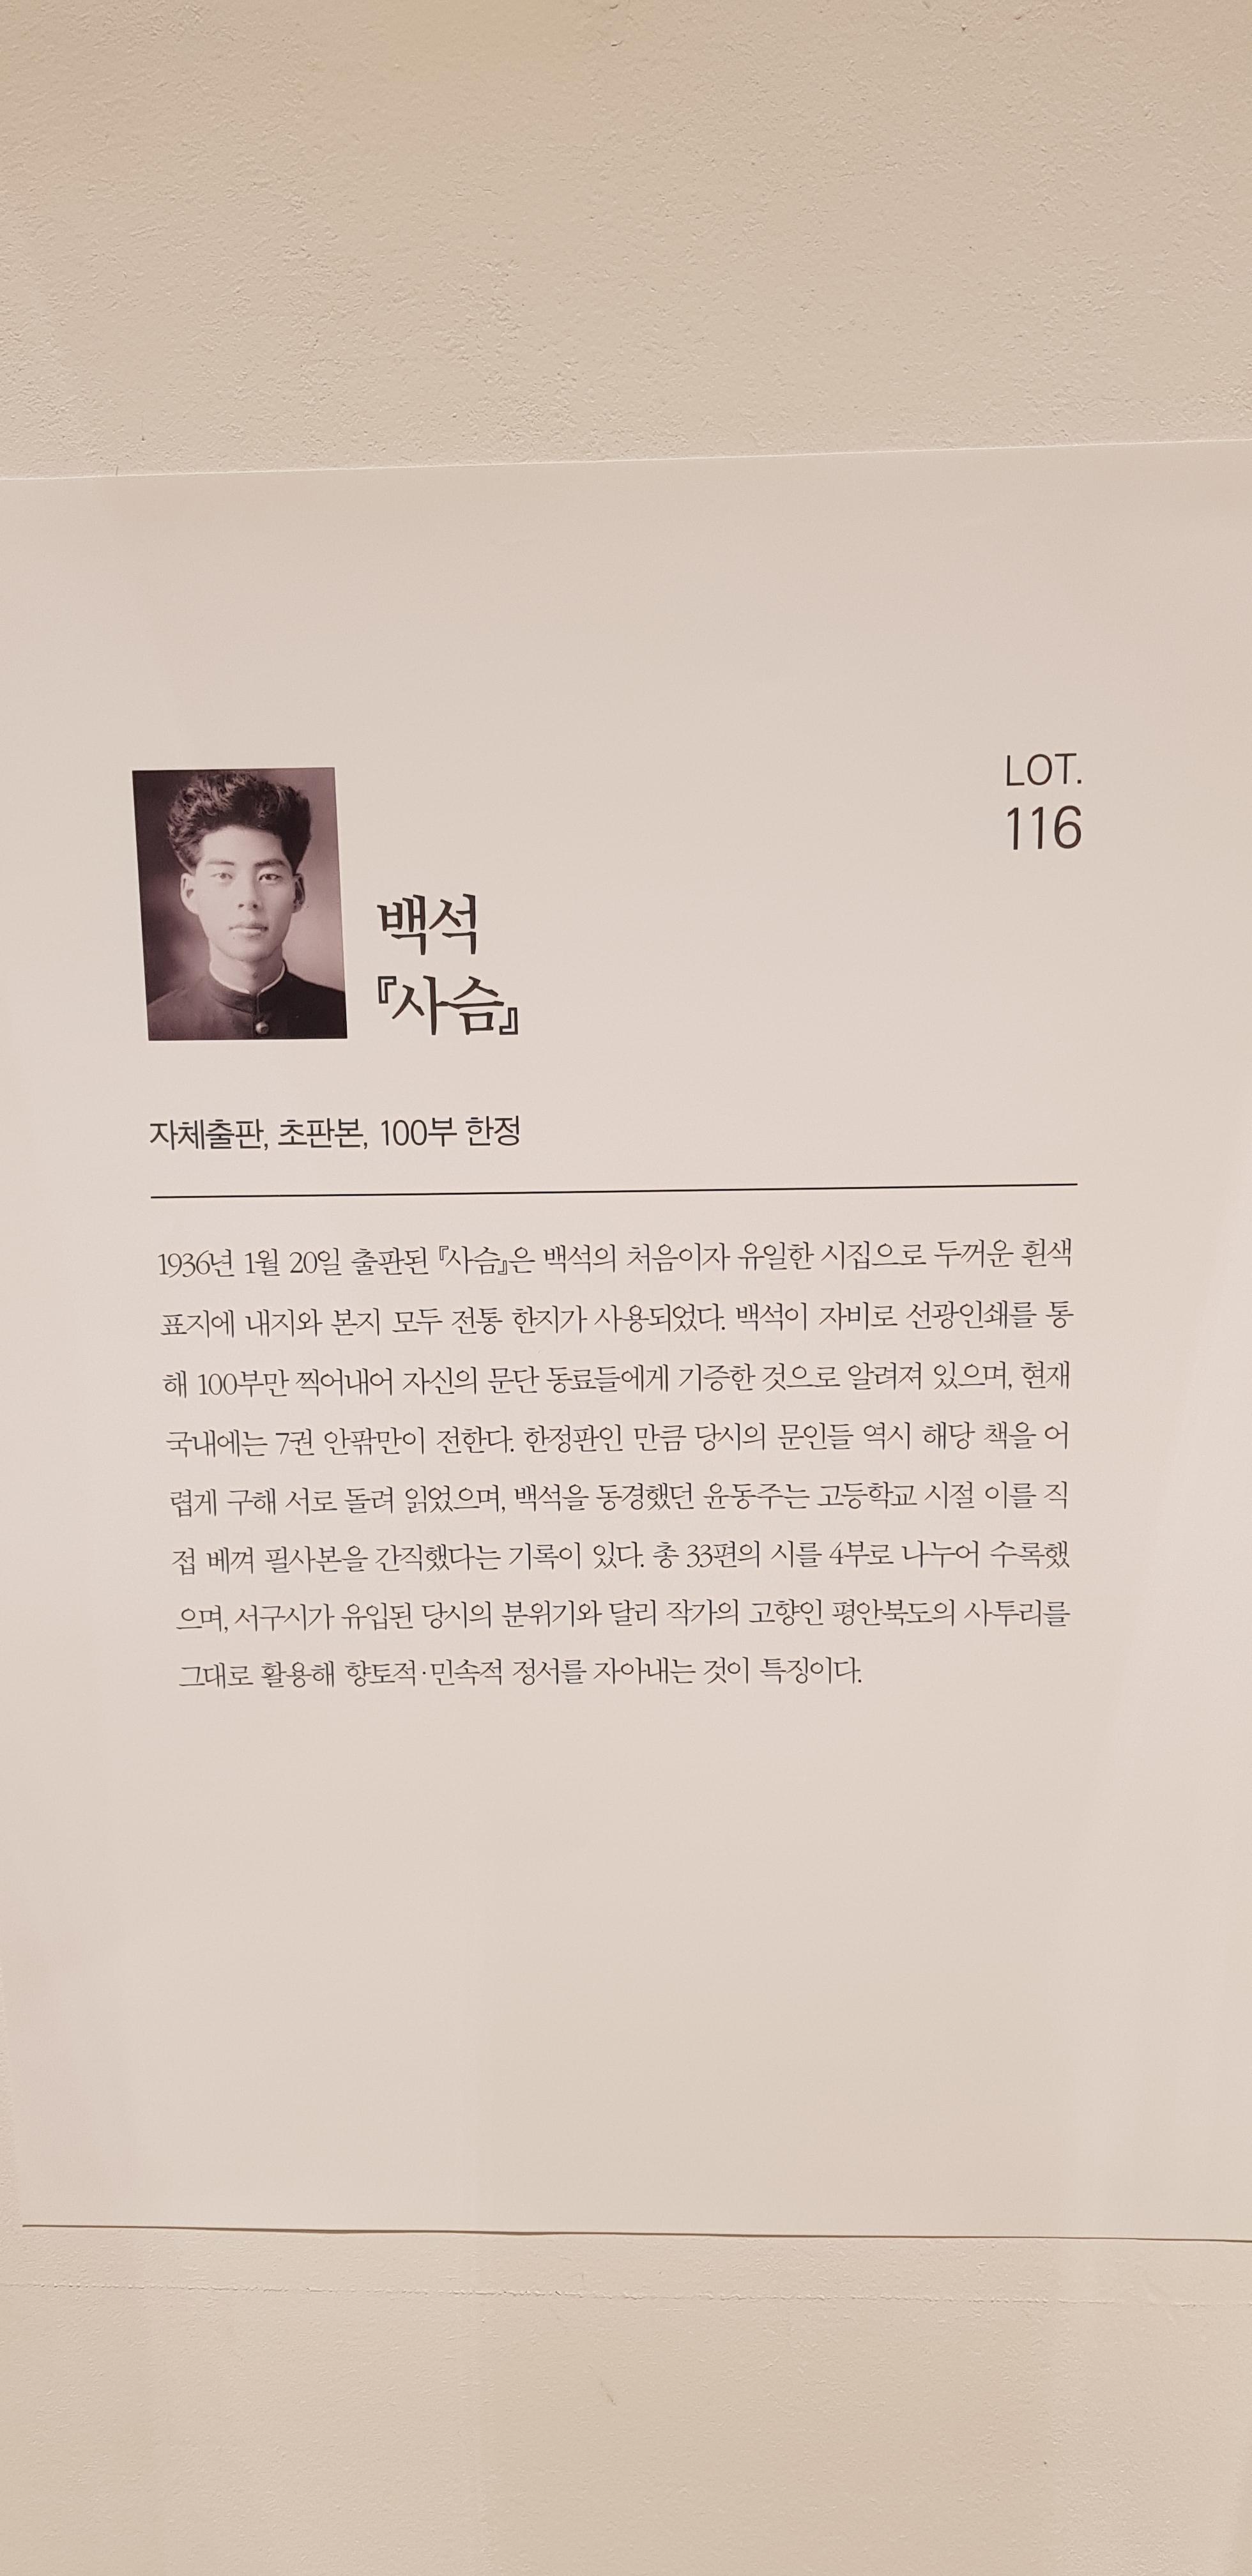 LOT.
116
백석
『사슴』
자체출판, 초판본, 100부 한정
1936년 1월 20일 출판된 『사슴』은 백석의 처음이자 유일한 시집으로 두꺼운 흰색
표지에 내지와 본지 모두 전통 한지가 사용되었다. 백석이 자비로 선광인쇄를 통
해 100부만 찍어내어 자신의 문단 동료들에게 기증한 것으로 알려져 있으며, 현재
국내에는 7권 안팎만이 전한다. 한정판인 만큼 당시의 문인들 역시 해당 책을 어
렵게 구해 서로 돌려 읽었으며, 백석을 동경했던 윤동주는 고등학교 시절 이를 직
접 베껴 필사본을 간직했다는 기록이 있다. 총 33편의 시를 4부로 나누어 수록했
으며, 서구시가 유입된 당시의 분위기와 달리 작가의 고향인 평안북도의 사투리를
그대로 활용해 향토적·민속적 정서를 자아내는 것이 특징이다.